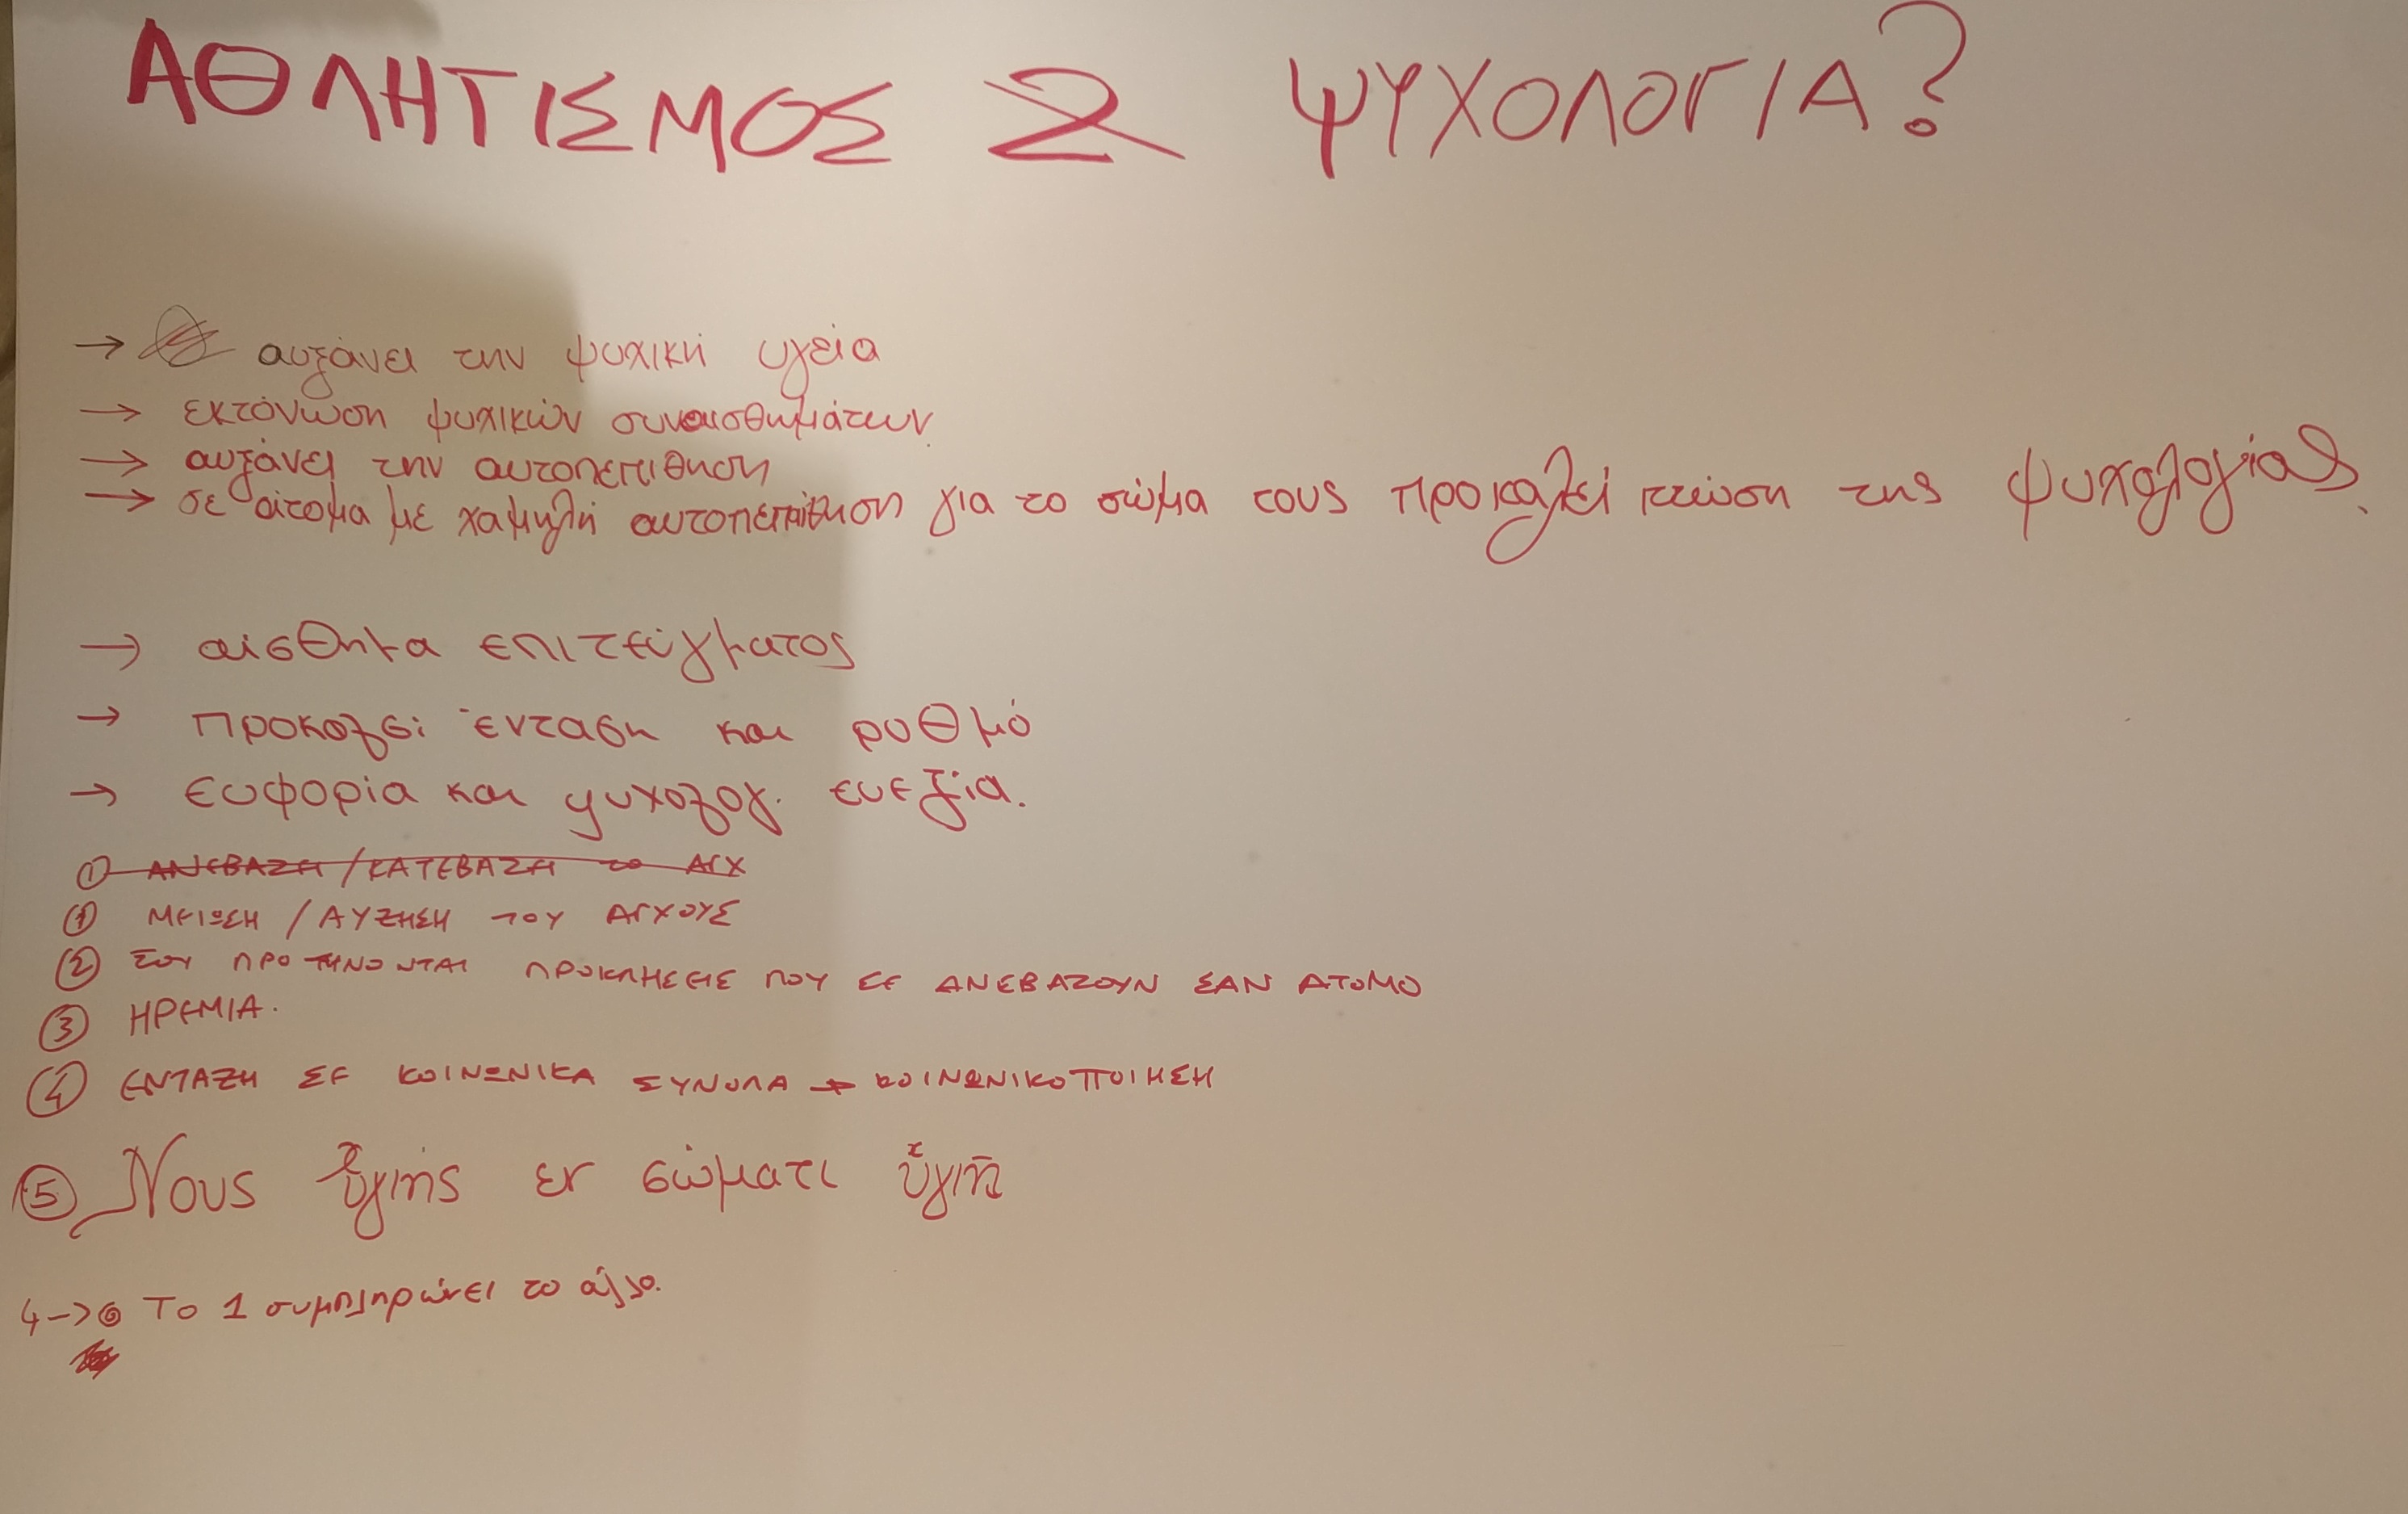 ΑΘΛΗΤΙΣΜΟΣ & ΨΥΧΟΛΟΓΙΑ?
→ αυξάνει την ψυχική υγεία
→ εκτόνωση ψυχικών συναισθημάτων
→ αυξάνει την αυτοπεπιθηση
→ σε άτομα με χαμηλή αυτοπεπίθηση για το σώμα τους προκαλεί πτώση της ψυχολογίας.
→ αίσθημα επιτεύγματος
→ προκαλεί ένταση και ρυθμό
→ ευφορία και ψυχολογ. ευεξία.
① ΑΝΕΒΑΖΕΙ / ΚΑΤΕΒΑΖΕΙ το ΑΓΧ
① ΜΕΙΩΣΗ / ΑΥΞΗΣΗ ΤΟΥ ΑΓΧΟΥΣ
② ΣΟΥ ΠΡΟΤΗΝΟΝΤΑΙ ΠΡΟΚΛΗΣΕΙΣ ΠΟΥ ΣΕ ΑΝΕΒΑΖΟΥΝ ΣΑΝ ΑΤΟΜΟ
③ ΗΡΕΜΙΑ.
④ ΕΝΤΑΞΗ ΣΕ ΚΟΙΝΩΝΙΚΑ ΣΥΝΟΛΑ → ΚΟΙΝΩΝΙΚΟΠΟΙΗΣΗ
⑤ Νους ὑγιής εν σώματι ὑγιῆ
4 -> ⑥ Το 1 συμπληρώνει το άλλο.